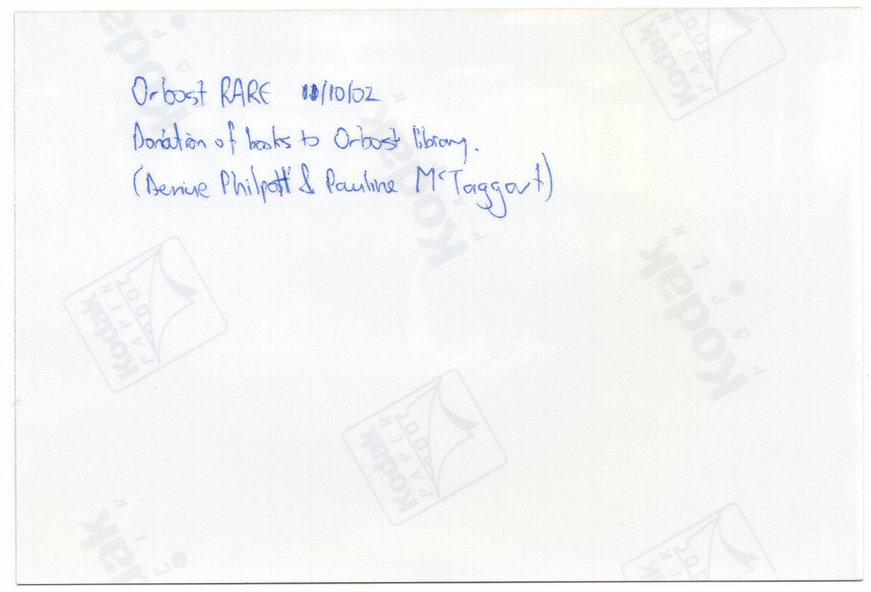 Orbost RARE 11/10/02
Donation of books to Orbost library.
(Denise Philpott & Pauline McTaggart)
Kodak
PAPER
Kodak
PAPER
Kodak
PAPER
Kodak
PAPER
Kodak
PAPER
Kodak
PAPER